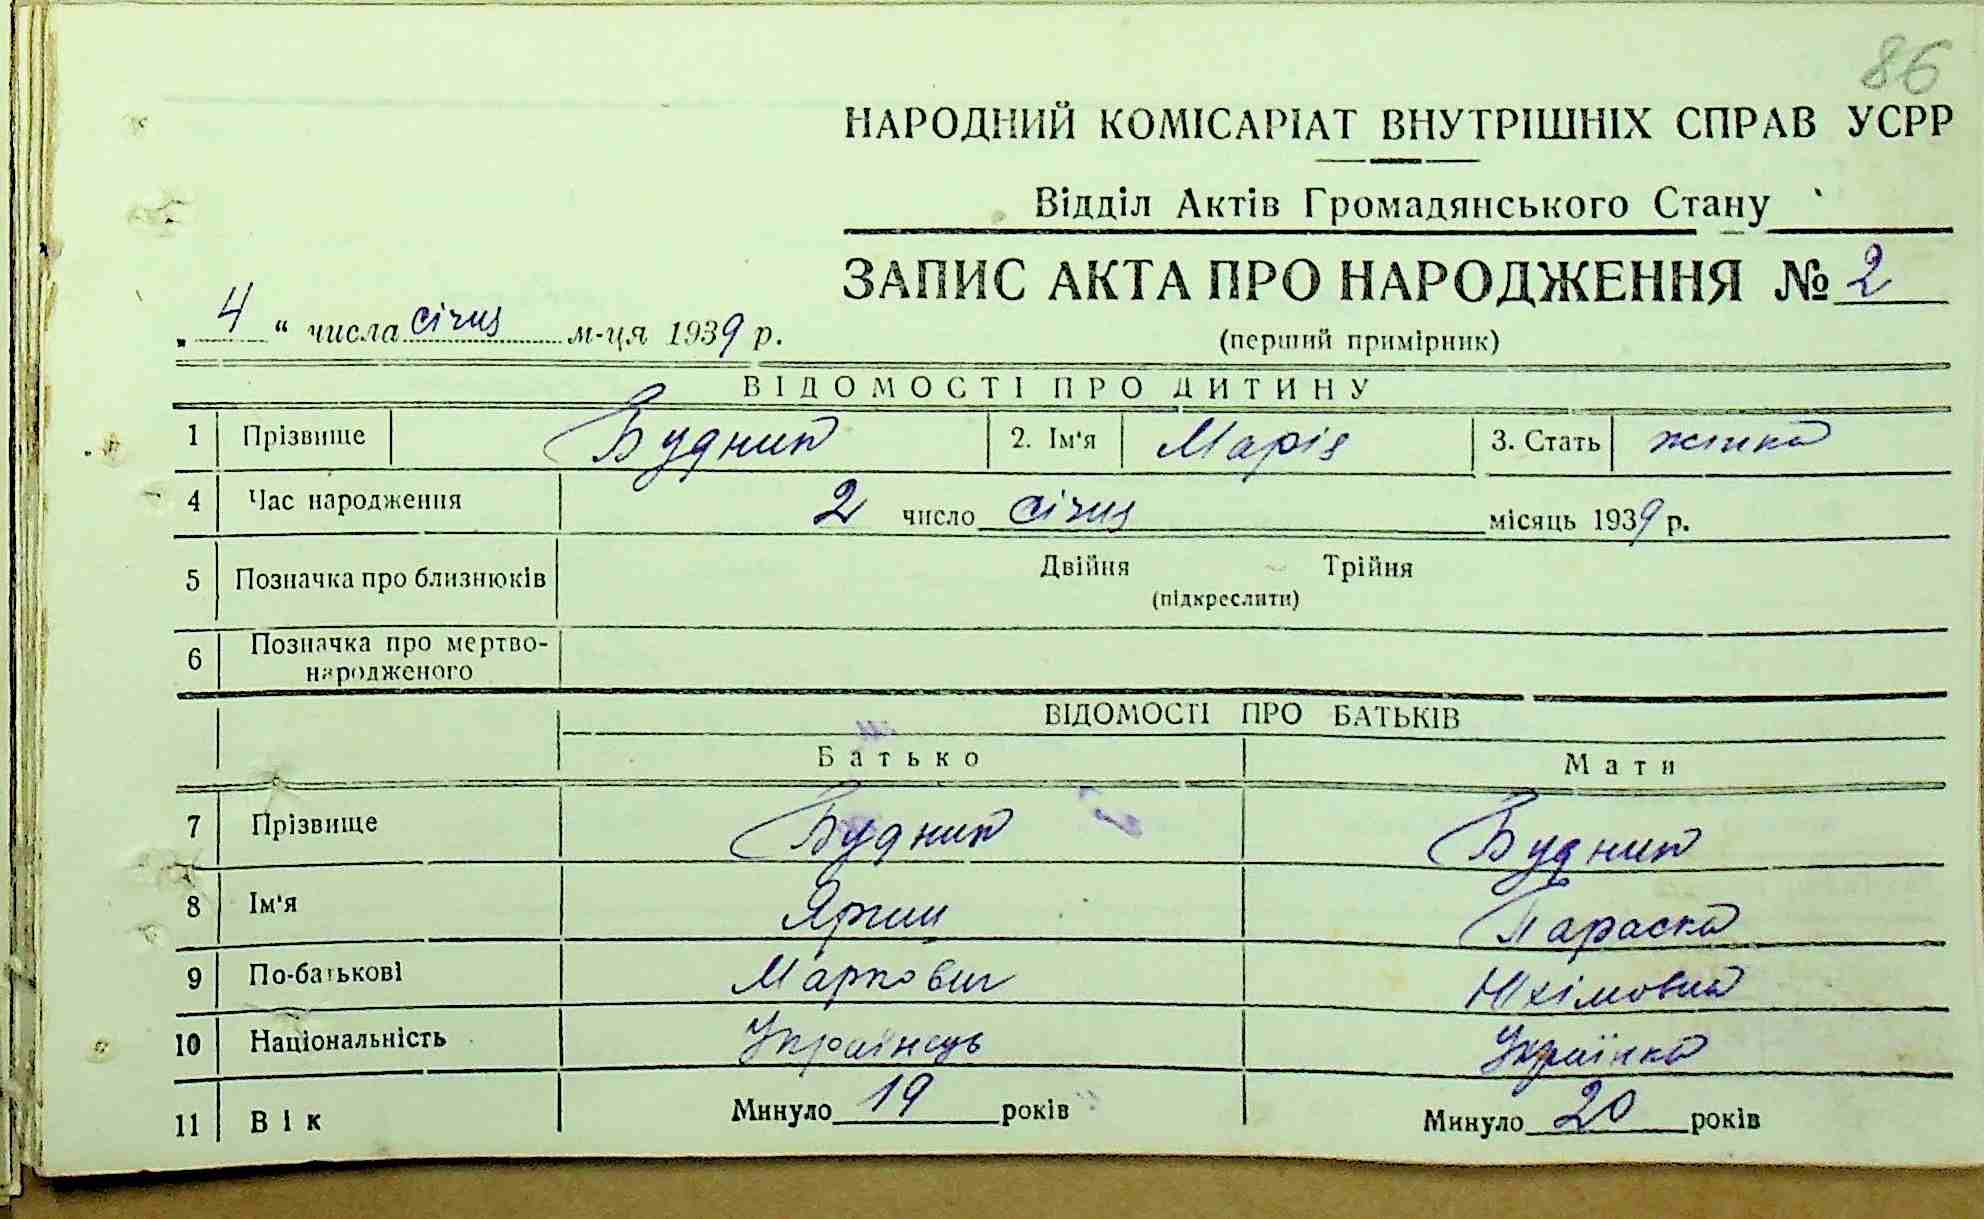 86
НАРОДНИЙ КОМІСАРІАТ ВНУТРІШНІХ СПРАВ УСРР
Відділ Актів Громадянського Стану
ЗАПИС АКТА ПРО НАРОДЖЕННЯ № 2
„ 4 “ числа січня м-ця 1939 р.
(перший примірник)
ВІДОМОСТІ ПРО ДИТИНУ
1 Прізвище Будник 2. Ім'я Марія 3. Стать жінка
4 Час народження 2 число січня місяць 1939 р.
5 Позначка про близнюків Двійня Трійня
(підкреслити)
6 Позначка про мертво-
народженого
ВІДОМОСТІ ПРО БАТЬКІВ
Батько Мати
7 Прізвище Будник Будник
8 Ім'я Параска
9 По-батькові Маркович Юхімовна
10 Національність Українець Українка
11 Вік Минуло 19 років Минуло 20 років